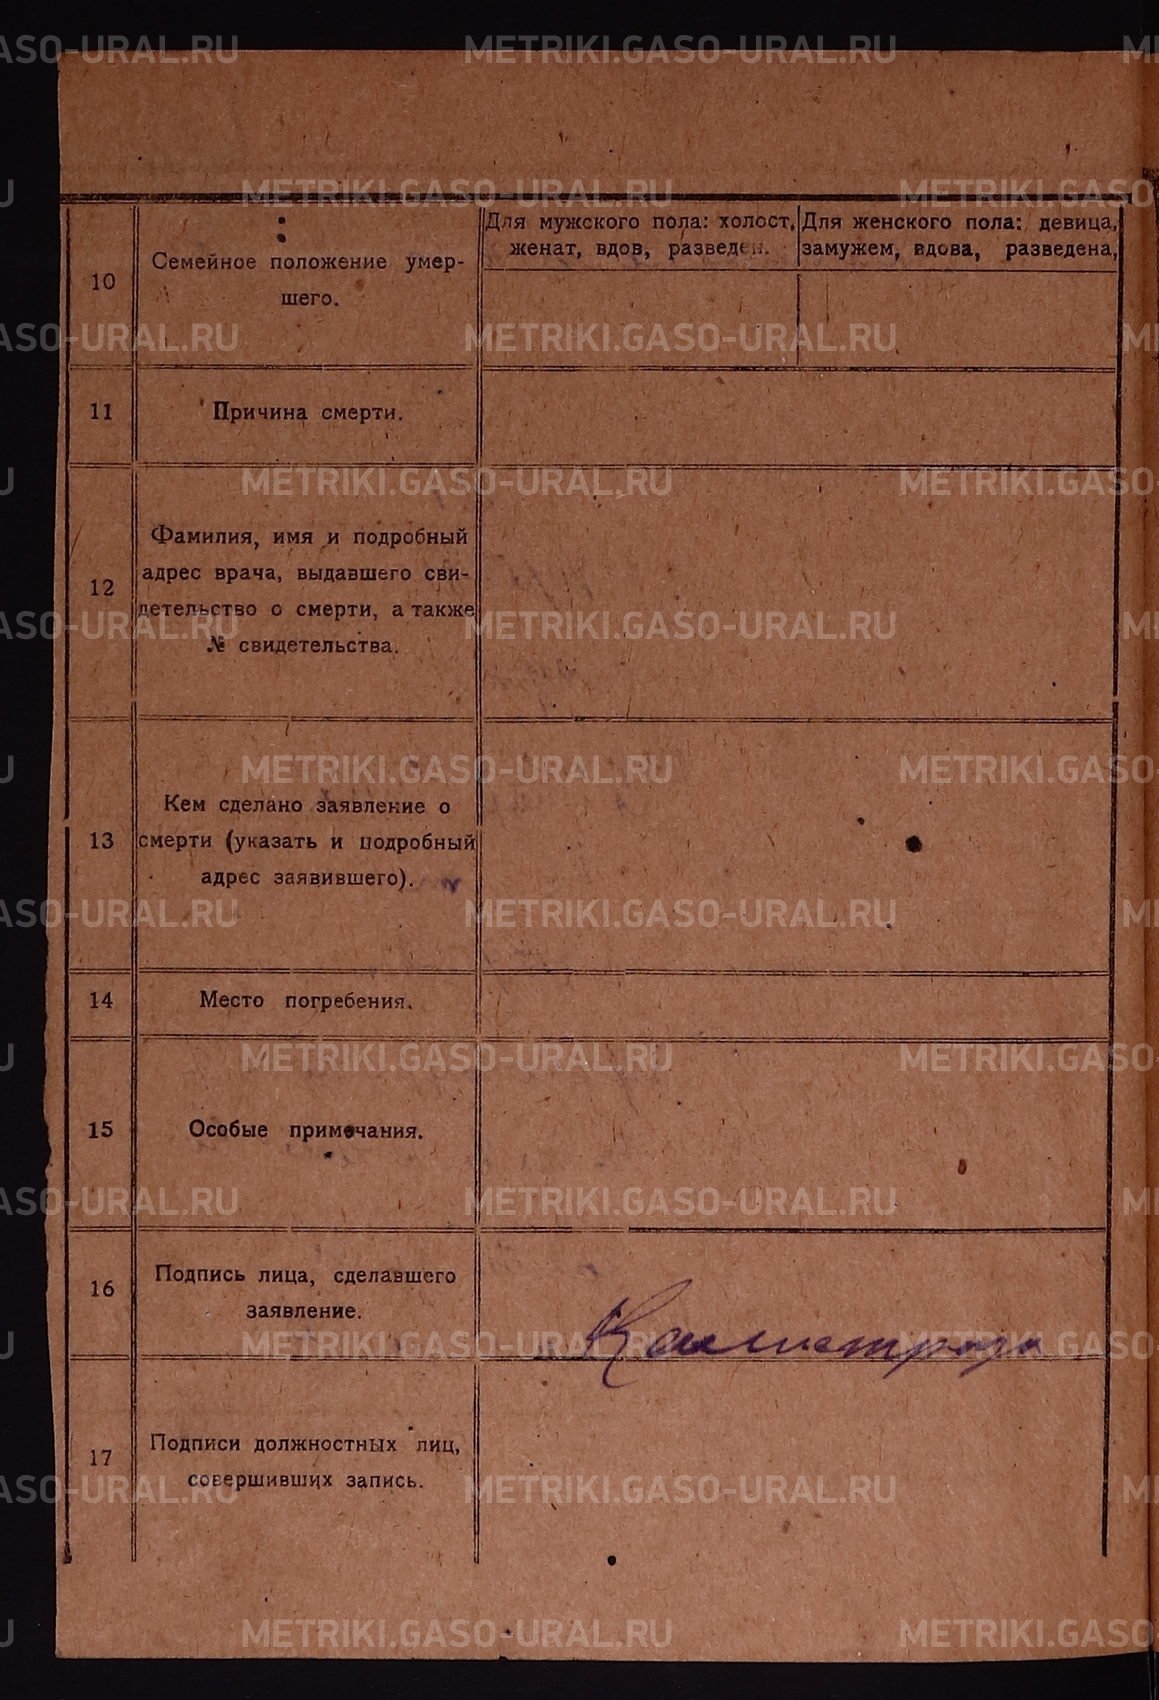 10
Семейное положение умер-
шего.
Для мужского пола: холост,
женат, вдов, разведен.
Для женского пола: девица,
замужем, вдова, разведена,
11
Причина смерти.
12
Фамилия, имя и подробный
адрес врача, выдавшего сви-
детельство о смерти, а также
№ свидетельства.
13
Кем сделано заявление о
смерти (указать и подробный
адрес заявившего).
14
Место погребения.
15
Особые примечания.
16
Подпись лица, сделавшего
заявление.
17
Подписи должностных лиц,
совершивших запись.
METRIKI.GASO-URAL.RU